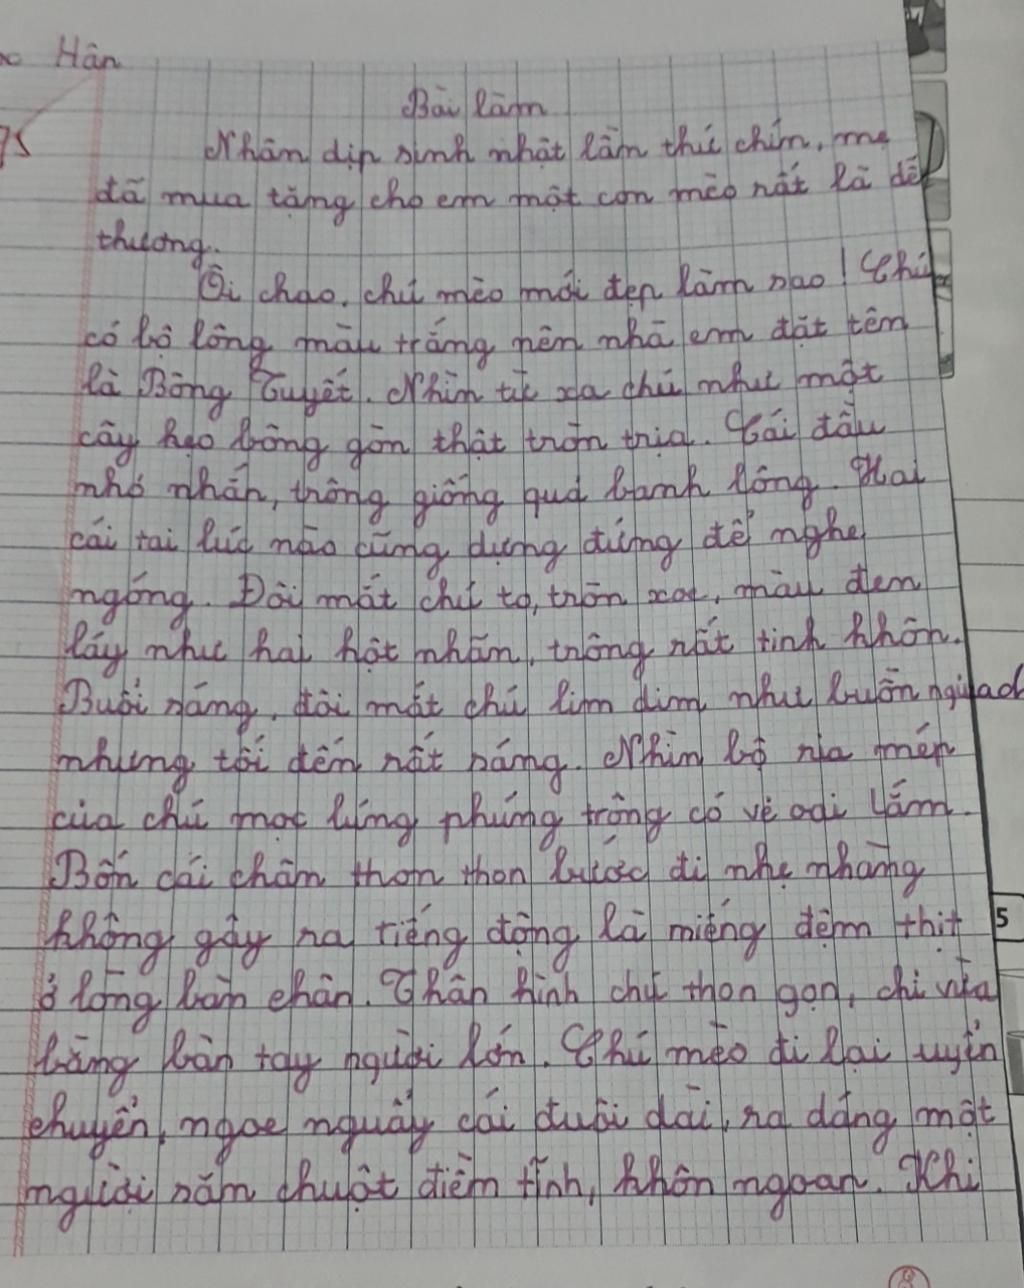 Hân
Bài làm
75
Nhân dịp sinh nhật lần thứ chín, mẹ
đã mua tặng cho em một con mèo rất là dễ
thương.
Ôi chao, chú mèo mới đẹp làm sao! Chú
có bộ lông màu trắng nên nhà em đặt tên
là Bông Tuyết. Nhìn từ xa chú như một
cây kẹo bông gòn thật tròn trịa. Cái đầu
nhỏ nhắn, trông giống quả banh lông. Hai
cái tai lúc nào cũng dựng đứng để nghe
ngóng. Đôi mắt chú to, tròn xoe, màu đen
láy như hai hột nhãn, trông rất tinh khôn.
Buổi sáng, đôi mắt chú lim dim như buồn ngủ
nhưng tối đến rất sáng. Nhìn bộ ria mép
của chú mọc lúng phúng trông có vẻ oai lắm.
Bốn cái chân thon thon bước đi nhẹ nhàng
không gây ra tiếng động là miếng đệm thịt
ở lòng bàn chân. Thân hình chú thon gọn, chỉ vừa
bằng bàn tay người lớn. Chú mèo đi lại uyển
chuyển, ngoe nguẩy cái đuôi dài, ra dáng một
người săn chuột điềm tĩnh, khôn ngoan. Khi
5